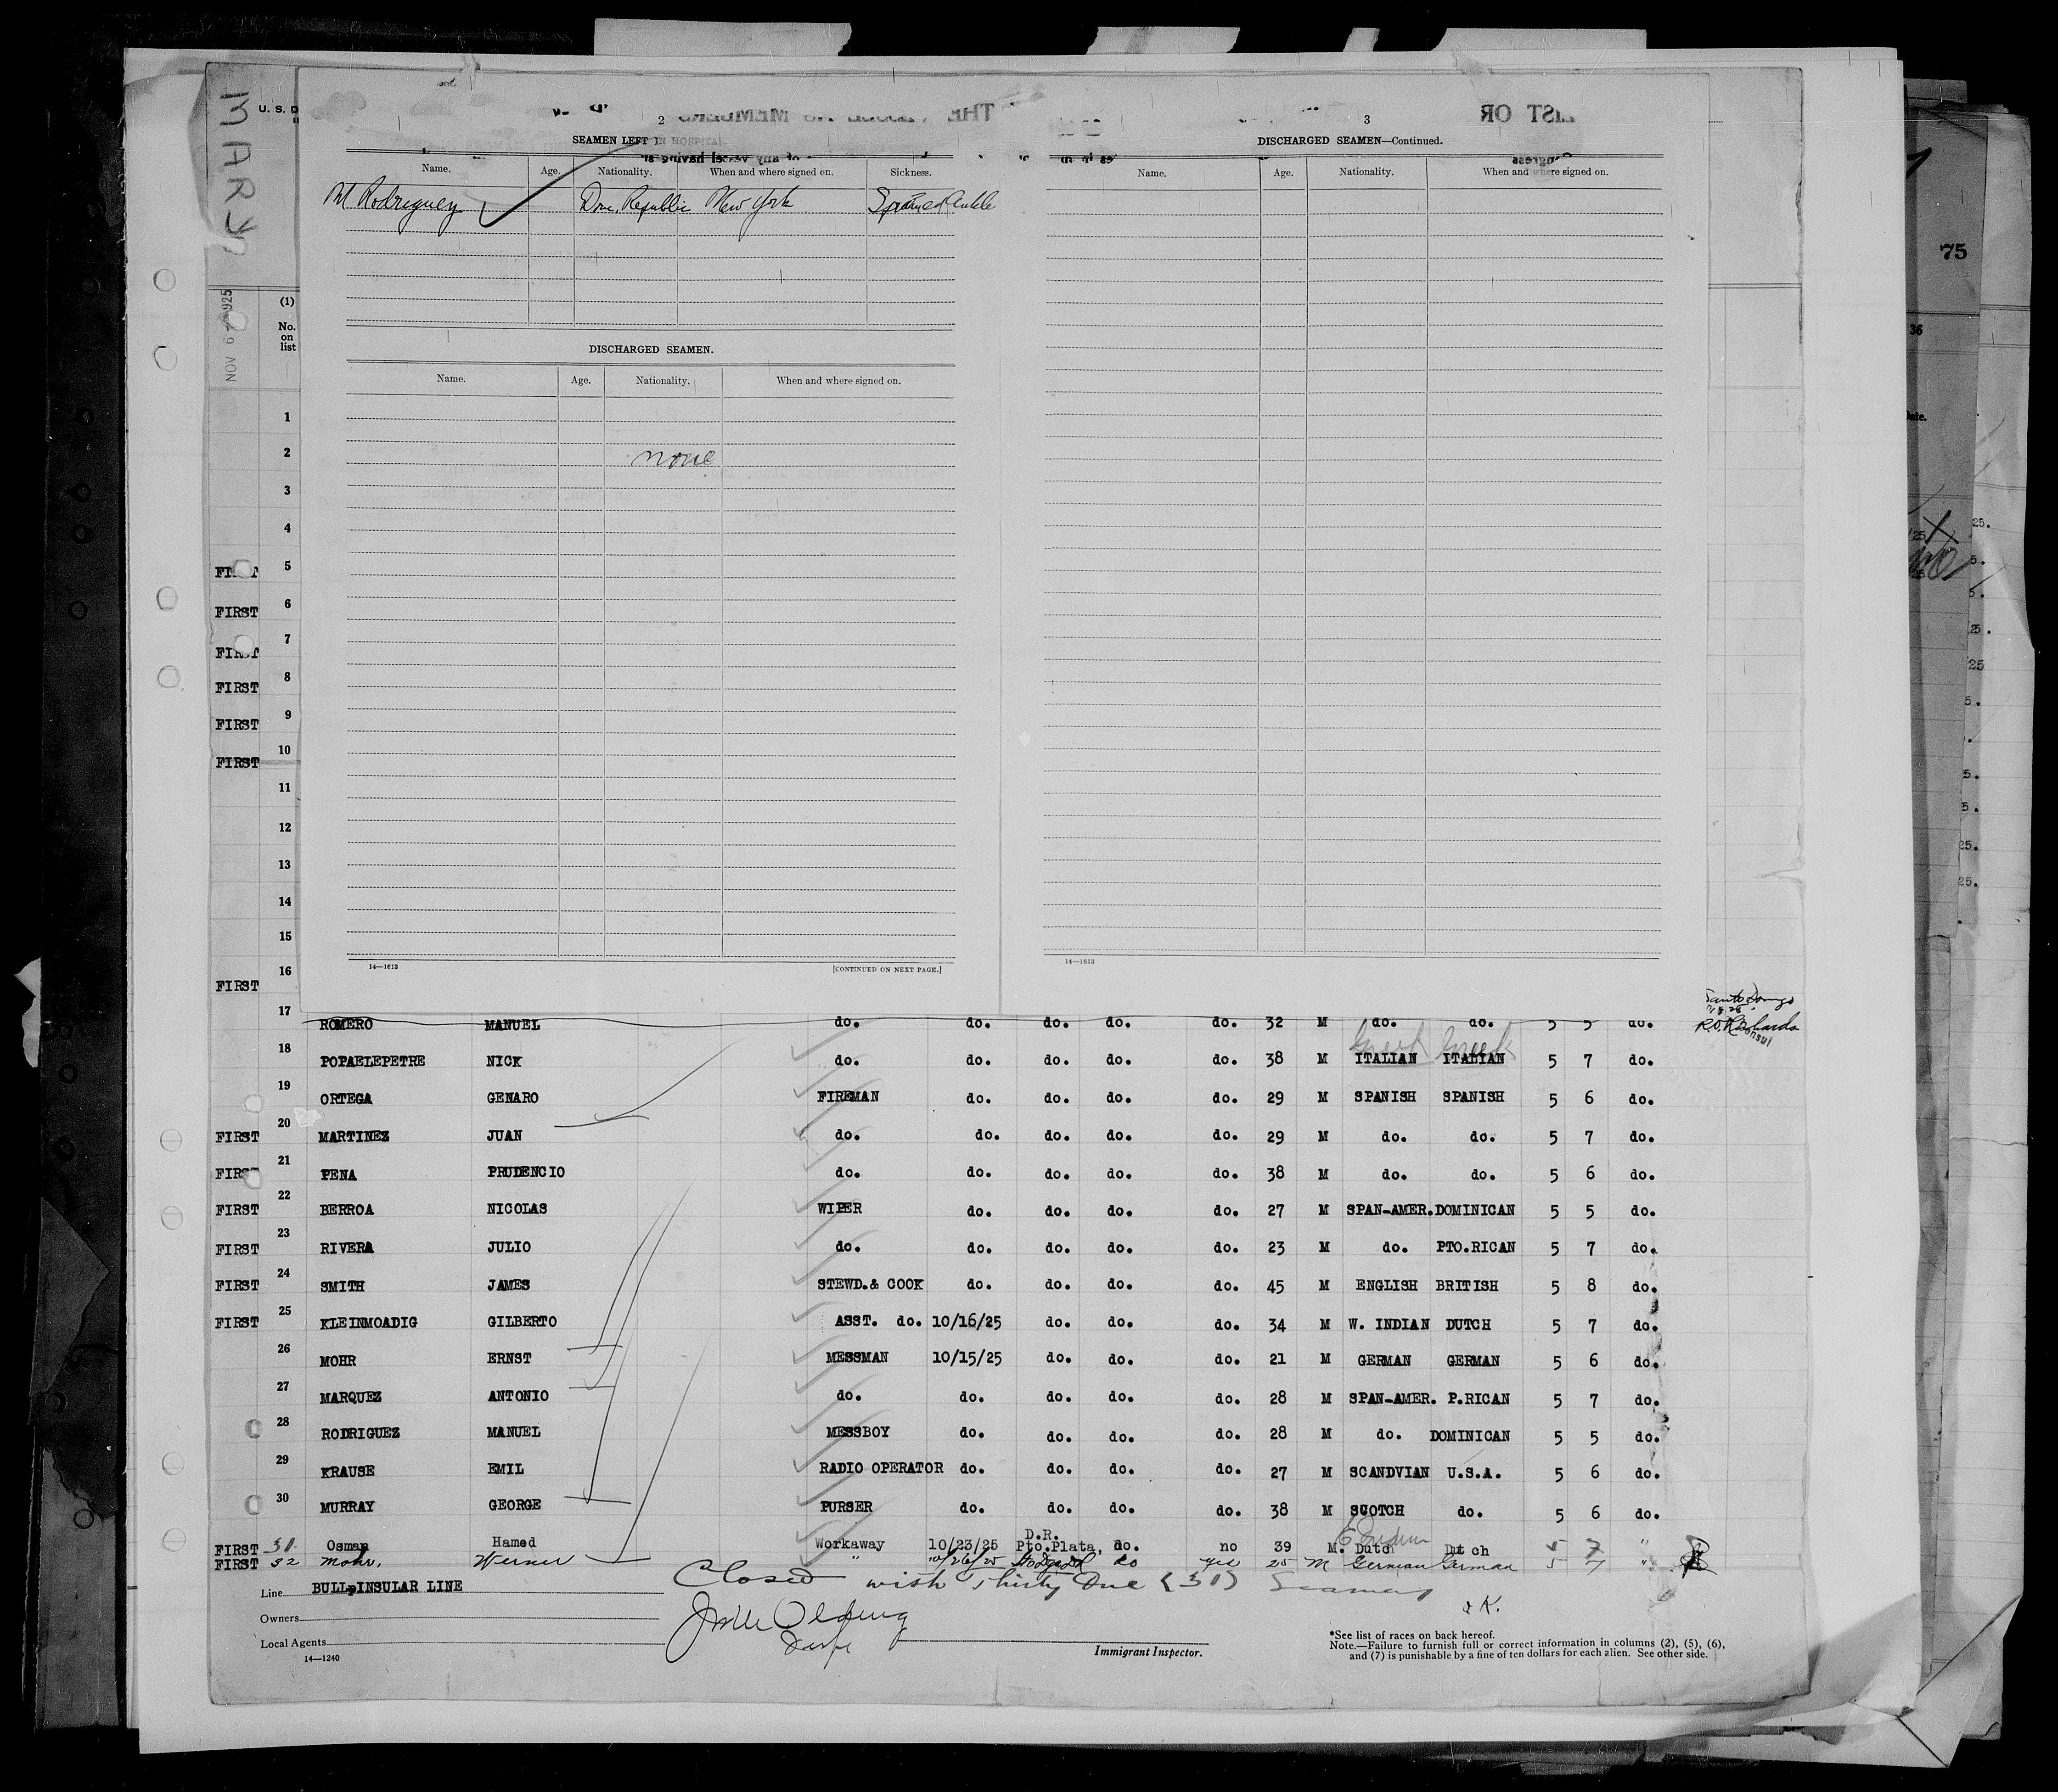 MARY
U. S. D
NOV 6 - 1925
2
SEAMEN LEFT IN HOSPITAL
Name. Age. Nationality. When and where signed on. Sickness.
M Rodriguez Dom. Republic New York Sprained Ankle
DISCHARGED SEAMEN.
Name. Age. Nationality. When and where signed on.
none
14—1613 [CONTINUED ON NEXT PAGE.]
3
DISCHARGED SEAMEN—Continued.
Name. Age. Nationality. When and where signed on.
14—1613
75
36
(1)
No.
on
list
1
2
3
4
5
FIRST 6
7
FIRST 8
FIRST 9
FIRST 10
11
12
13
14
15
FIRST 16
Santo Domingo
17 ROMERO MANUEL do. do. do. do. do. 32 M do. do. 5 5 do.
18 POPAELEPETRE NICK do. do. do. do. do. 38 M Greek ITALIAN Greek ITALIAN 5 7 do.
19 ORTEGA GENARO FIREMAN do. do. do. do. 29 M SPANISH SPANISH 5 6 do.
FIRST 20 MARTINEZ JUAN do. do. do. do. do. 29 M do. do. 5 7 do.
FIRST 21 PENA PRUDENCIO do. do. do. do. do. 38 M do. do. 5 6 do.
FIRST 22 BERROA NICOLAS WIPER do. do. do. do. 27 M SPAN-AMER. DOMINICAN 5 5 do.
FIRST 23 RIVERA JULIO do. do. do. do. do. 23 M do. PTO.RICAN 5 7 do.
FIRST 24 SMITH JAMES STEWD.& COOK do. do. do. do. 45 M ENGLISH BRITISH 5 8 do.
FIRST 25 KLEINMOADIG GILBERTO ASST. do. 10/16/25 do. do. do. 34 M W. INDIAN DUTCH 5 7 do.
26 MOHR ERNST MESSMAN 10/15/25 do. do. do. 21 M GERMAN GERMAN 5 6 do.
27 MARQUEZ ANTONIO do. do. do. do. do. 28 M SPAN-AMER. P.RICAN 5 7 do.
28 RODRIGUEZ MANUEL MESSBOY do. do. do. do. 28 M do. DOMINICAN 5 5 do.
29 KRAUSE EMIL RADIO OPERATOR do. do. do. do. 27 M SCANDVIAN U.S.A. 5 6 do.
30 MURRAY GEORGE PURSER do. do. do. do. 38 M SCOTCH do. 5 6 do.
FIRST 31. Osman Hamed Workaway 10/23/25 D.R. Pto.Plata, do. no 39 M. Dutc Dutch 5 7 "
FIRST 32 Mohr, Werner " 10/26/25 do yes 25 M German German 5 7 "
Line BULL-INSULAR LINE
Closed with Thirty One (31) Seamen
OK.
Owners
Local Agents
14—1240
Immigrant Inspector.
*See list of races on back hereof.
Note.—Failure to furnish full or correct information in columns (2), (5), (6),
and (7) is punishable by a fine of ten dollars for each alien. See other side.